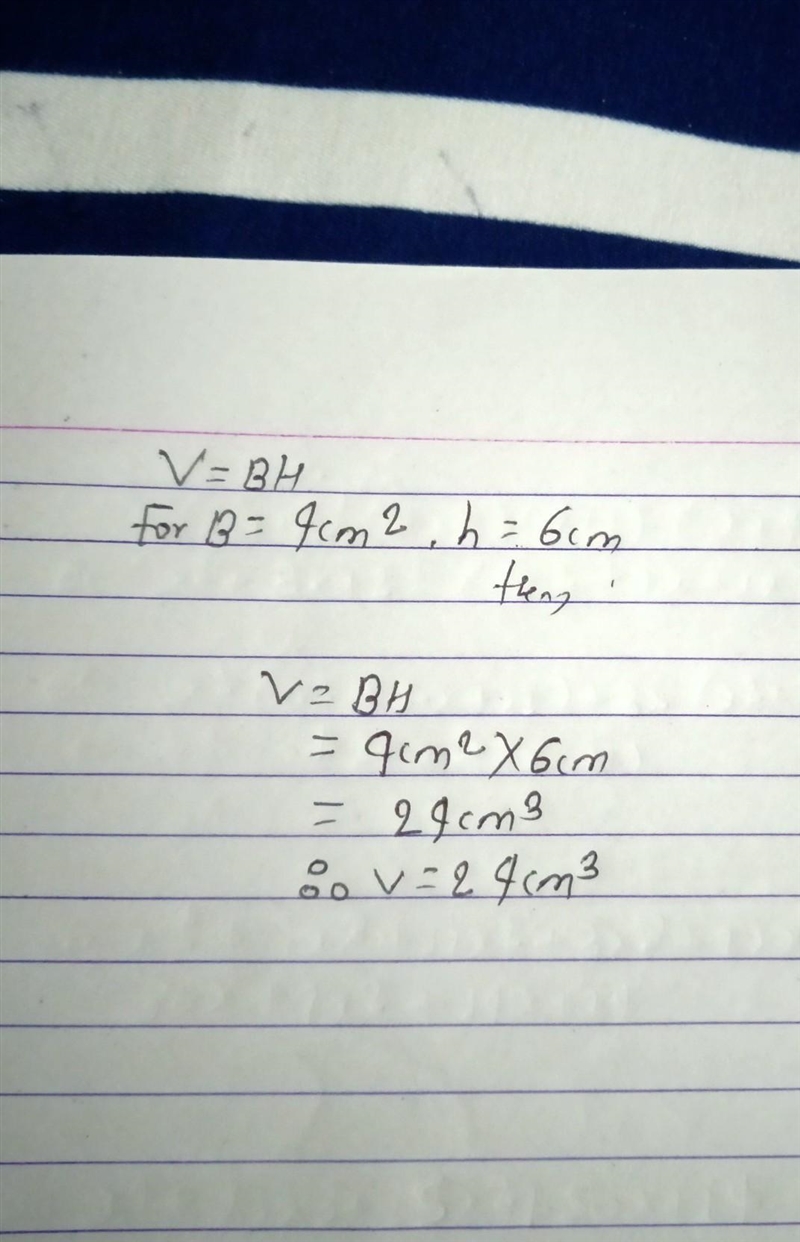 V = BH
For B = 4cm², h = 6cm
then,
V = BH
= 4cm² × 6cm
= 24cm³
∴ V = 24cm³